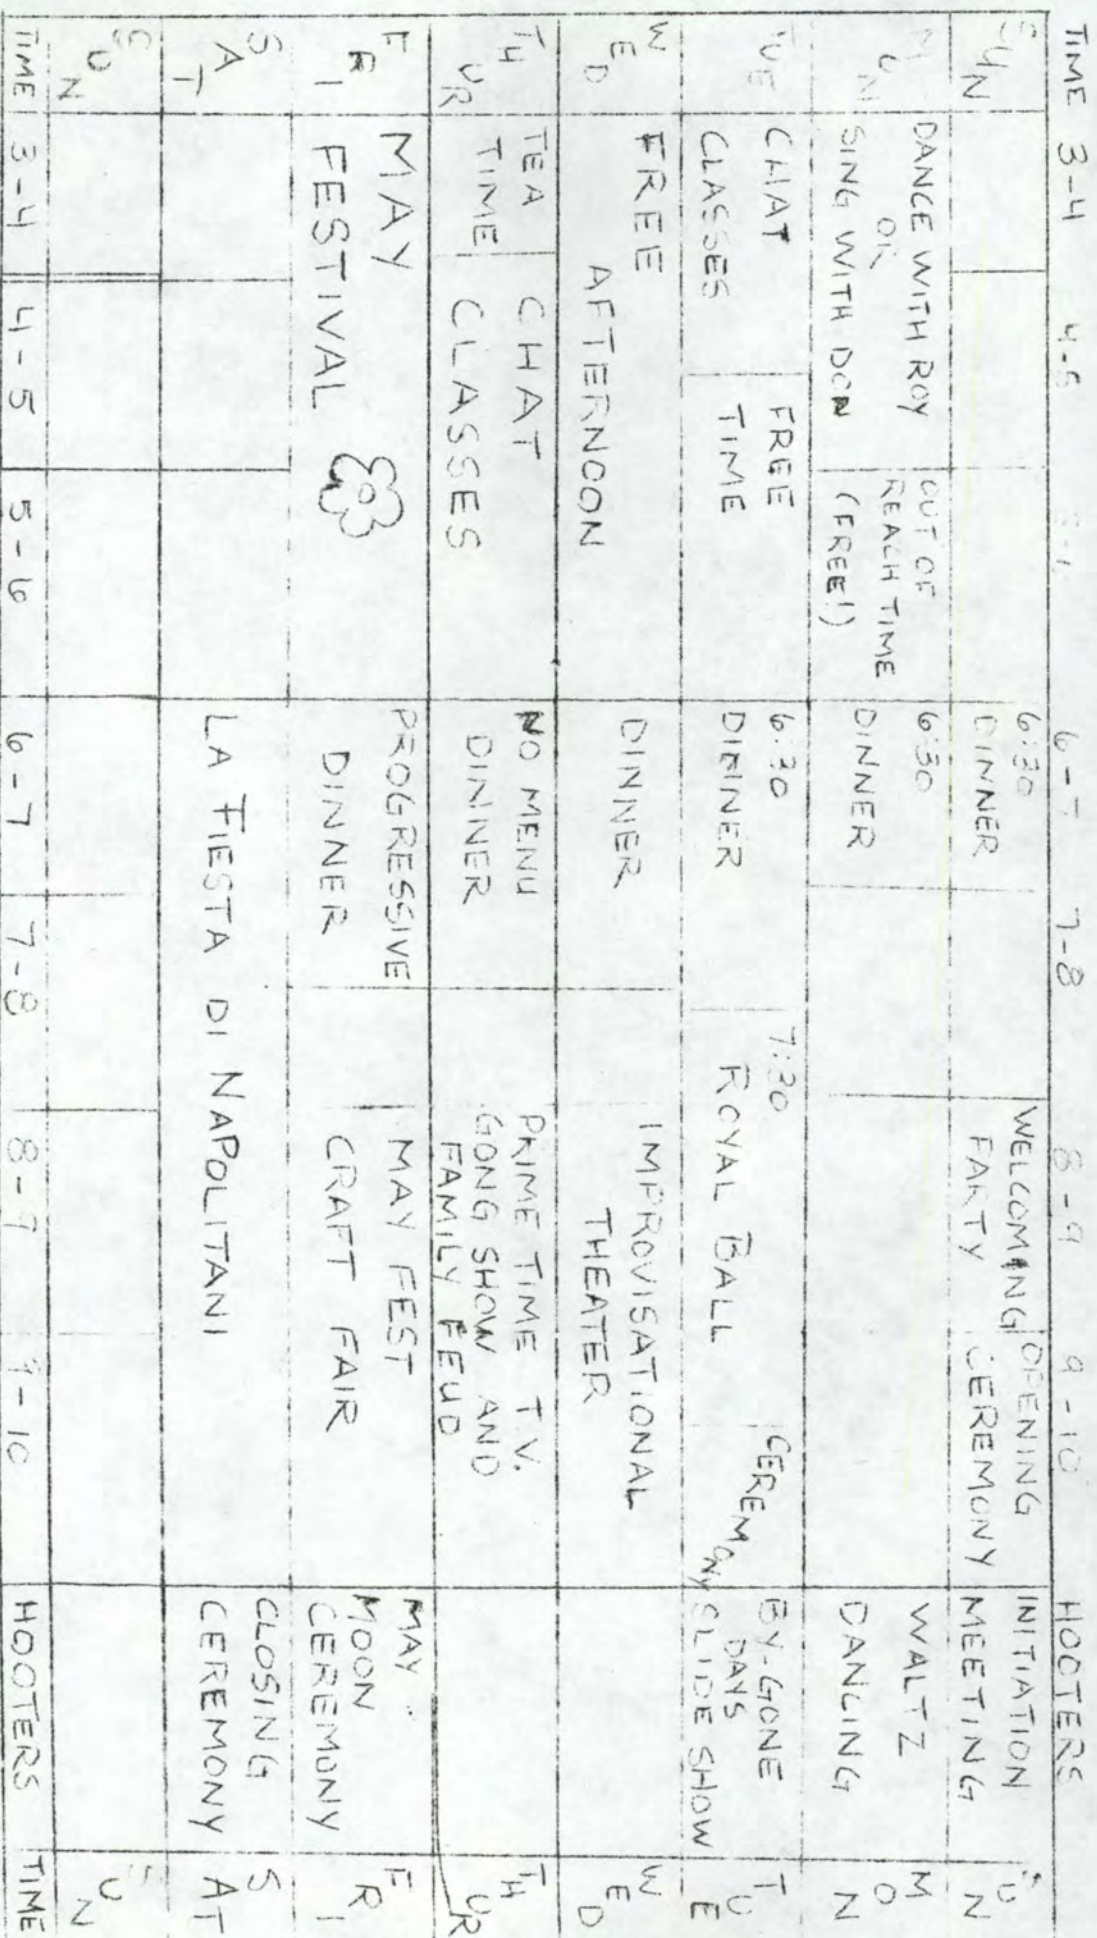 TIME 3-4 4-5 6-7 7-8 8-9 9-10 HOOTERS
SUN
6:30
DINNER
WELCOMING
PARTY
OPENING
CEREMONY
INITIATION
MEETING
SUN
MON
DANCE WITH ROY
OR
SING WITH DON
OUT OF
REACH TIME
(FREE!)
6:30
DINNER
WALTZ
DANCING
MON
TUE
CHAT
CLASSES
FREE
TIME
6:30
DINNER
7:30
ROYAL BALL
CEREMONY
BY-GONE
DAYS
SLIDE SHOW
TUE
WED
FREE
AFTERNOON
DINNER
IMPROVISATIONAL
THEATER
WED
THUR
TEA
TIME
CHAT
CLASSES
NO MENU
DINNER
PRIME TIME T.V.
GONG SHOW AND
FAMILY FEUD
THUR
FRI
MAY
FESTIVAL
PROGRESSIVE
DINNER
MAY FEST
CRAFT FAIR
MAY
MOON
CEREMONY
FRI
SAT
LA FIESTA DI NAPOLITANI
CLOSING
CEREMONY
SAT
SUN
SUN
TIME 3-4 4-5 5-6 6-7 7-8 8-9 9-10 HOOTERS TIME